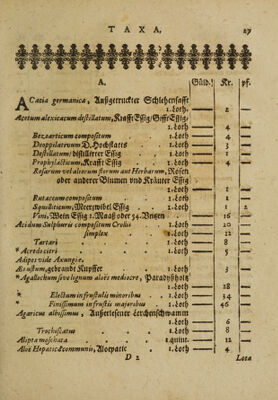 TAXA. 27
A. Güld. Kr. pf.
ACatia germanica, Außgetruckter Schlehensafft
1. Loth — 2 —
Acetum alexicacum destillatum, Krafft Essig/Gifft Essig/
1. Loth — 4 —
Bezoarticum compositum 1. Loth — 4 —
Deoppilativum D. Hochstatts 1. Loth — 3 —
Destillatum/ distillirter Essig 1. Loth — 1 —
Prophylacticum, Krafft Essig 1. Loth — 4 —
Rosarum vel aliorum florum aut Herbarum, Rosen
oder anderer Blumen und Kräuter Essig
1. Loth — 1 —
Rutaceum compositum 1. Loth — 2 —
Squilliticum, Meerzwibel Essig 1. Loth — 2 —
Vini, Wein Essig 1. Maaß oder 54. Untzen — 16 —
Acidum Sulphuris compositum Crolii 1. Loth — 20 —
simplex 1. Loth — 12 —
Tartari 1. Loth — 8 —
* Acrodecitri 1. Loth — 5 —
Adipes vide Axungiæ.
Æs ustum, gebrandt Kupffer 1. Loth — 3 —
* Agallochum sive lignum aloës mediocre, Paradyßholtz
1. Loth — 28 —
* Electum in frustulis minoribus 1. Loth — 34 —
* Finissimum in frustis majoribus 1. Loth — 46 —
Agaricus albissimus, Außerlesener Lerchenschwamm
1. Loth — 6 —
Trochiscatus 1. Loth — 8 —
Alipta moschata 1. quint. — 12 —
Aloë Hepatic. & communis, Aloepatic 1. Loth — 4 —
D 2 Lota